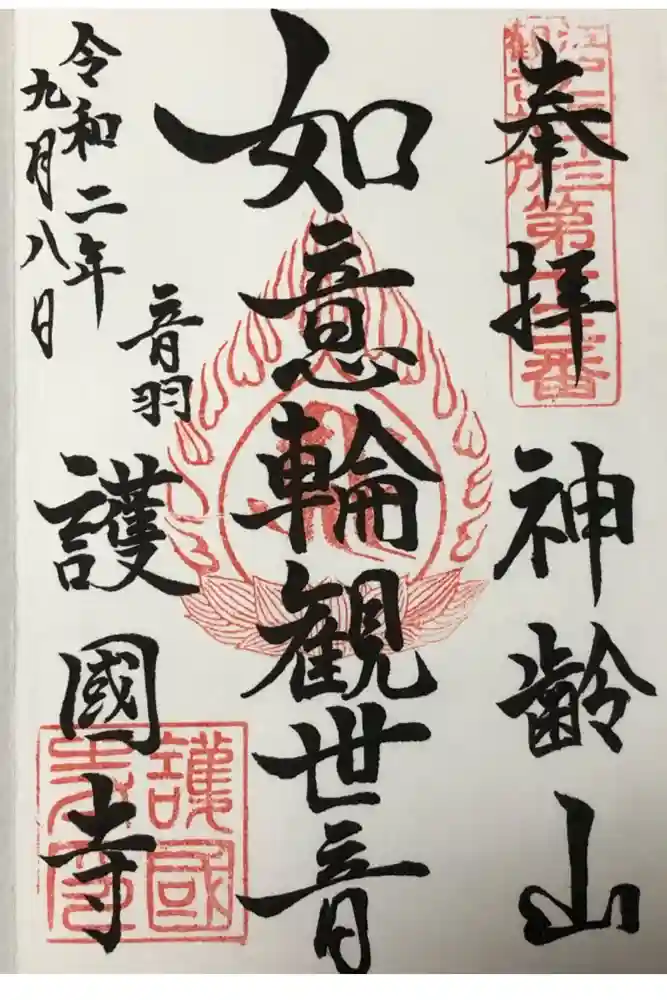 奉拝
神齢山
如意輪観世音
音羽
護國寺
令和二年
九月八日
護國
第十三番